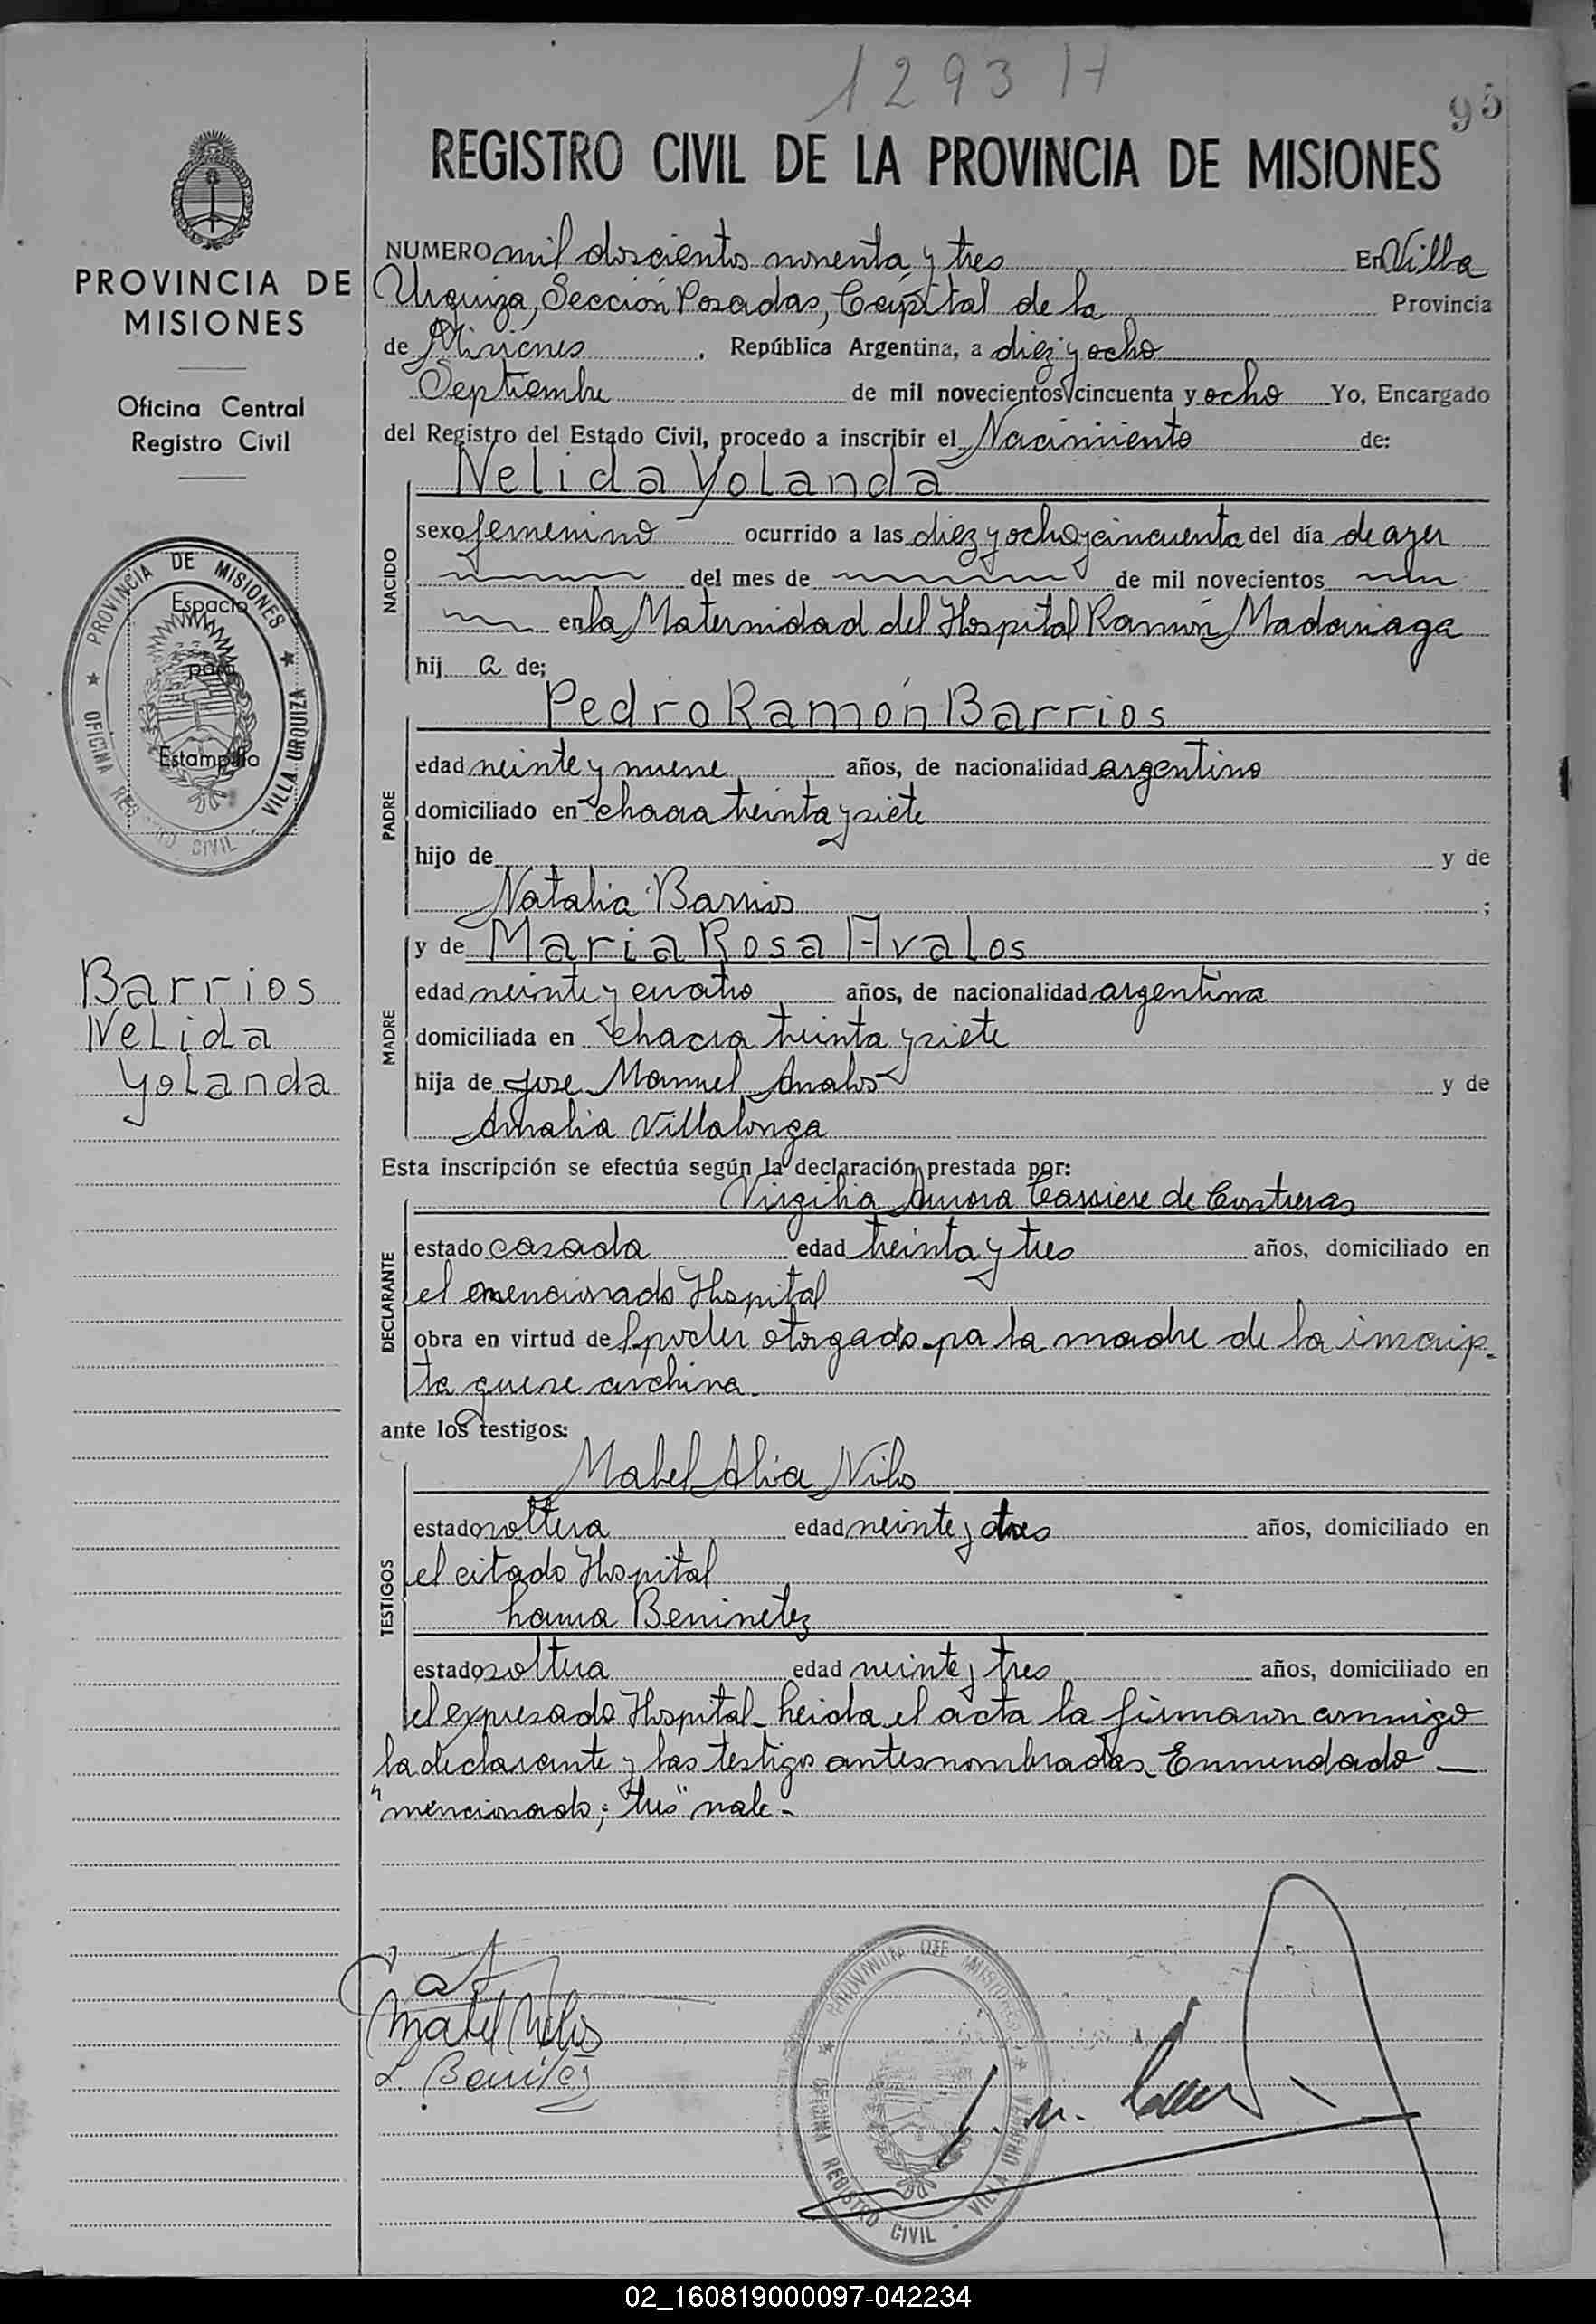 1293 H
95
REGISTRO CIVIL DE LA PROVINCIA DE MISIONES
PROVINCIA DE
MISIONES
Oficina Central
Registro Civil
PROVINCIA DE MISIONES
OFICINA REGISTRO CIVIL - VILLA URQUIZA
Espacio
para
Estampilla
Barrios
Nelida
Yolanda
NUMERO mil doscientos noventa y tres En Villa
Urquiza, Sección Posadas, Capital de la Provincia
de Misiones, República Argentina, a diez y ocho
Septiembre de mil novecientos cincuenta y ocho Yo, Encargado
del Registro del Estado Civil, procedo a inscribir el Nacimiento de:
NACIDO
Nelida Yolanda
sexo femenino ocurrido a las diez y ocho y cincuenta del día de ayer
del mes de de mil novecientos
en la Maternidad del Hospital Ramón Madariaga
hij a de;
PADRE
Pedro Ramón Barrios
edad veinte y nueve años, de nacionalidad argentino
domiciliado en chacra treinta y siete
hijo de y de
Natalia Barrios ;
MADRE
y de Maria Rosa Avalos
edad veinte y cuatro años, de nacionalidad argentina
domiciliada en chacra treinta y siete
hija de Jose Manuel Avalos y de
Amalia Villalonga
Esta inscripción se efectúa según la declaración prestada por:
DECLARANTE
Virgilia Aurora Carriere de Contreras
estado casada edad treinta y tres años, domiciliado en
el mencionado Hospital
obra en virtud de poder otorgado por la madre de la inscrip-
ta que se archiva.
ante los testigos:
TESTIGOS
Mabel Alia Niho
estado soltera edad veinte y tres años, domiciliado en
el citado Hospital
Laura Beninetez
estado soltera edad veinte y tres años, domiciliado en
el expresado Hospital - Leida el acta la firmaron conmigo
la declarante y las testigos antes nombradas. Enmendado -
"mencionado; tres" vale -
Mabel
L. Benitez
PROVINCIA DE MISIONES
OFICINA REGISTRO CIVIL - VILLA URQUIZA
02_160819000097-042234